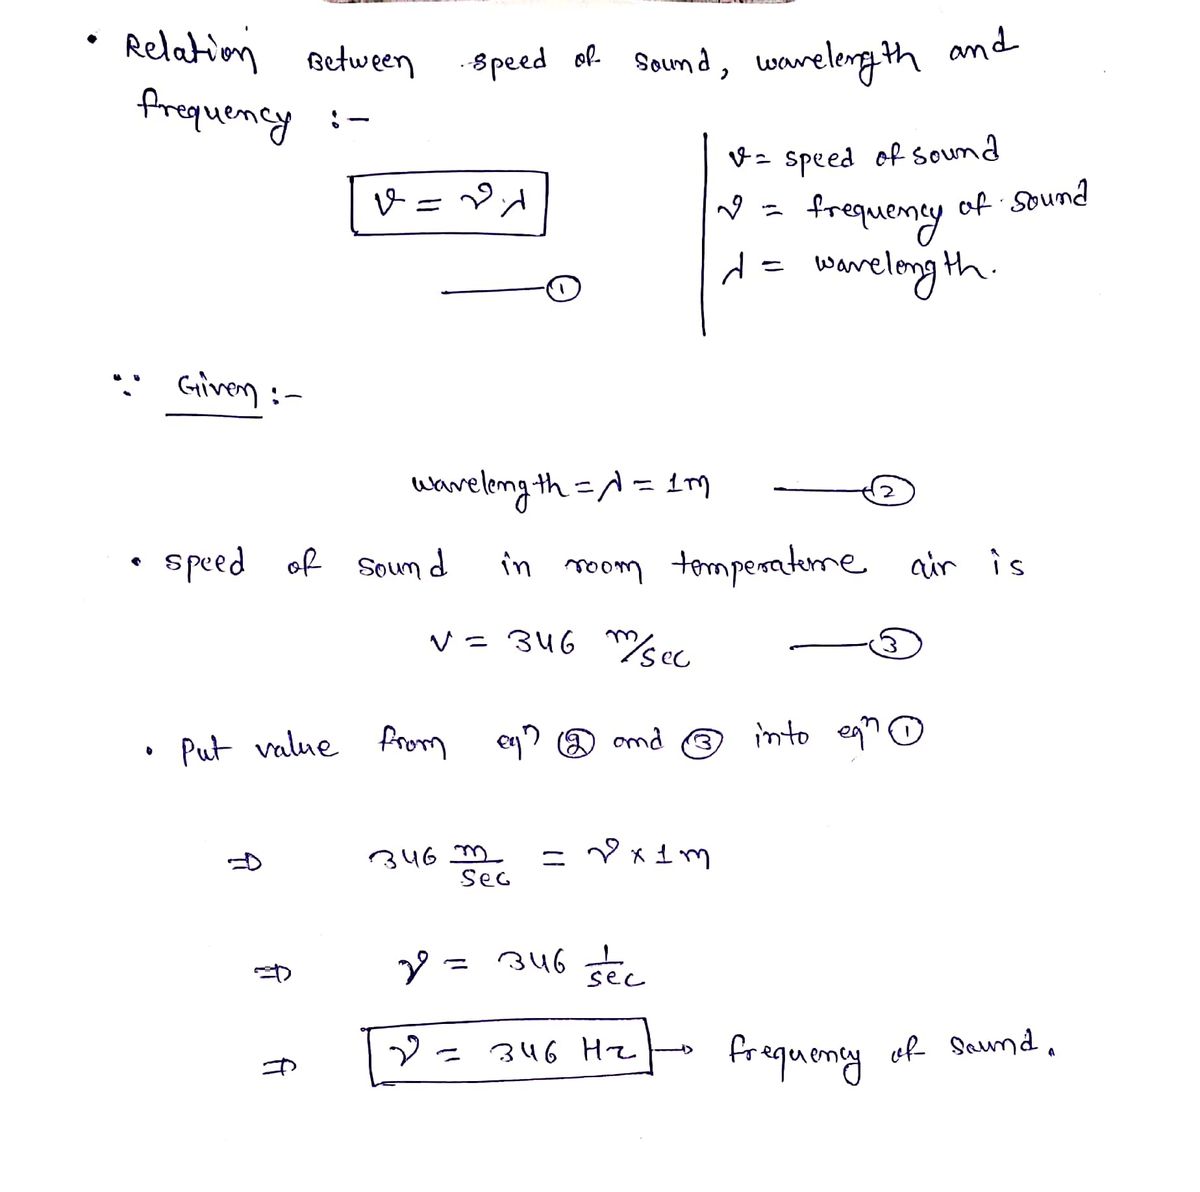 • Relation Between speed of sound, wavelength and
frequency :-
v = ν·λ
v = speed of sound
ν = frequency of sound
λ = wavelength.
—— ①
∵ Given :-
wavelength = λ = 1m —— ②
• speed of sound in room temperature air is
v = 346 m/sec —— ③
• Put value from eqn ② and ③ into eqn ①
⇒ 346 m/sec = ν × 1m
⇒ ν = 346 1/sec
⇒ ν = 346 Hz → frequency of sound.